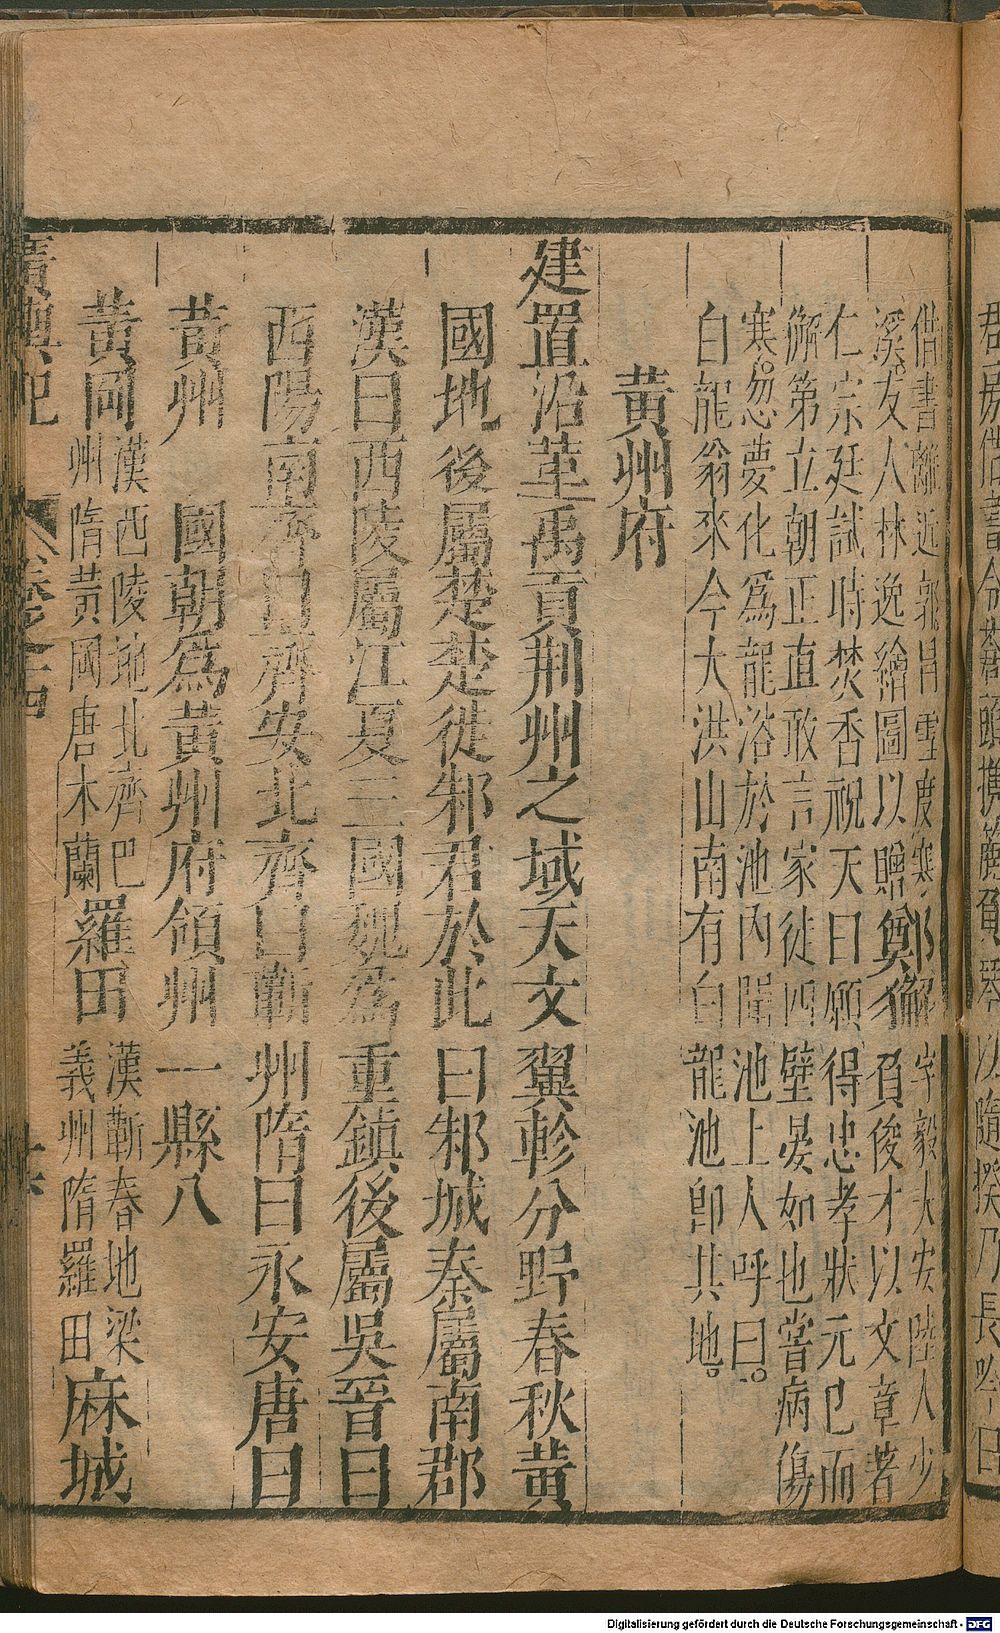 偕書離近郭昌雪度寒鄭獬字毅夫安陸人少
溪友人林逸繪圖以贈負俊才以文章著
仁宗廷試時焚香祝天曰願得忠孝狀元已而
獬第立朝正直敢言家徒四壁晏如也嘗病傷
寒忽夢化為龍浴於池內聞池上人呼曰
白龍翁來今大洪山南有白龍池即其地
黃州府
建置沿革禹貢荆州之域天文翼軫分野春秋黃
國地後屬楚楚徙邾君於此曰邾城秦屬南郡
漢曰西陵屬江夏三國魏為重鎮後屬吳晉曰
西陽南齊曰齊安北齊曰蘄州隋曰永安唐曰
黃州 國朝為黃州府領州一縣八
黃岡漢西陵地北齊巴州隋黃岡唐木蘭羅田漢蘄春地梁義州隋羅田麻城
廣輿記 卷之十四
Digitalisierung gefördert durch die Deutsche Forschungsgemeinschaft - DFG